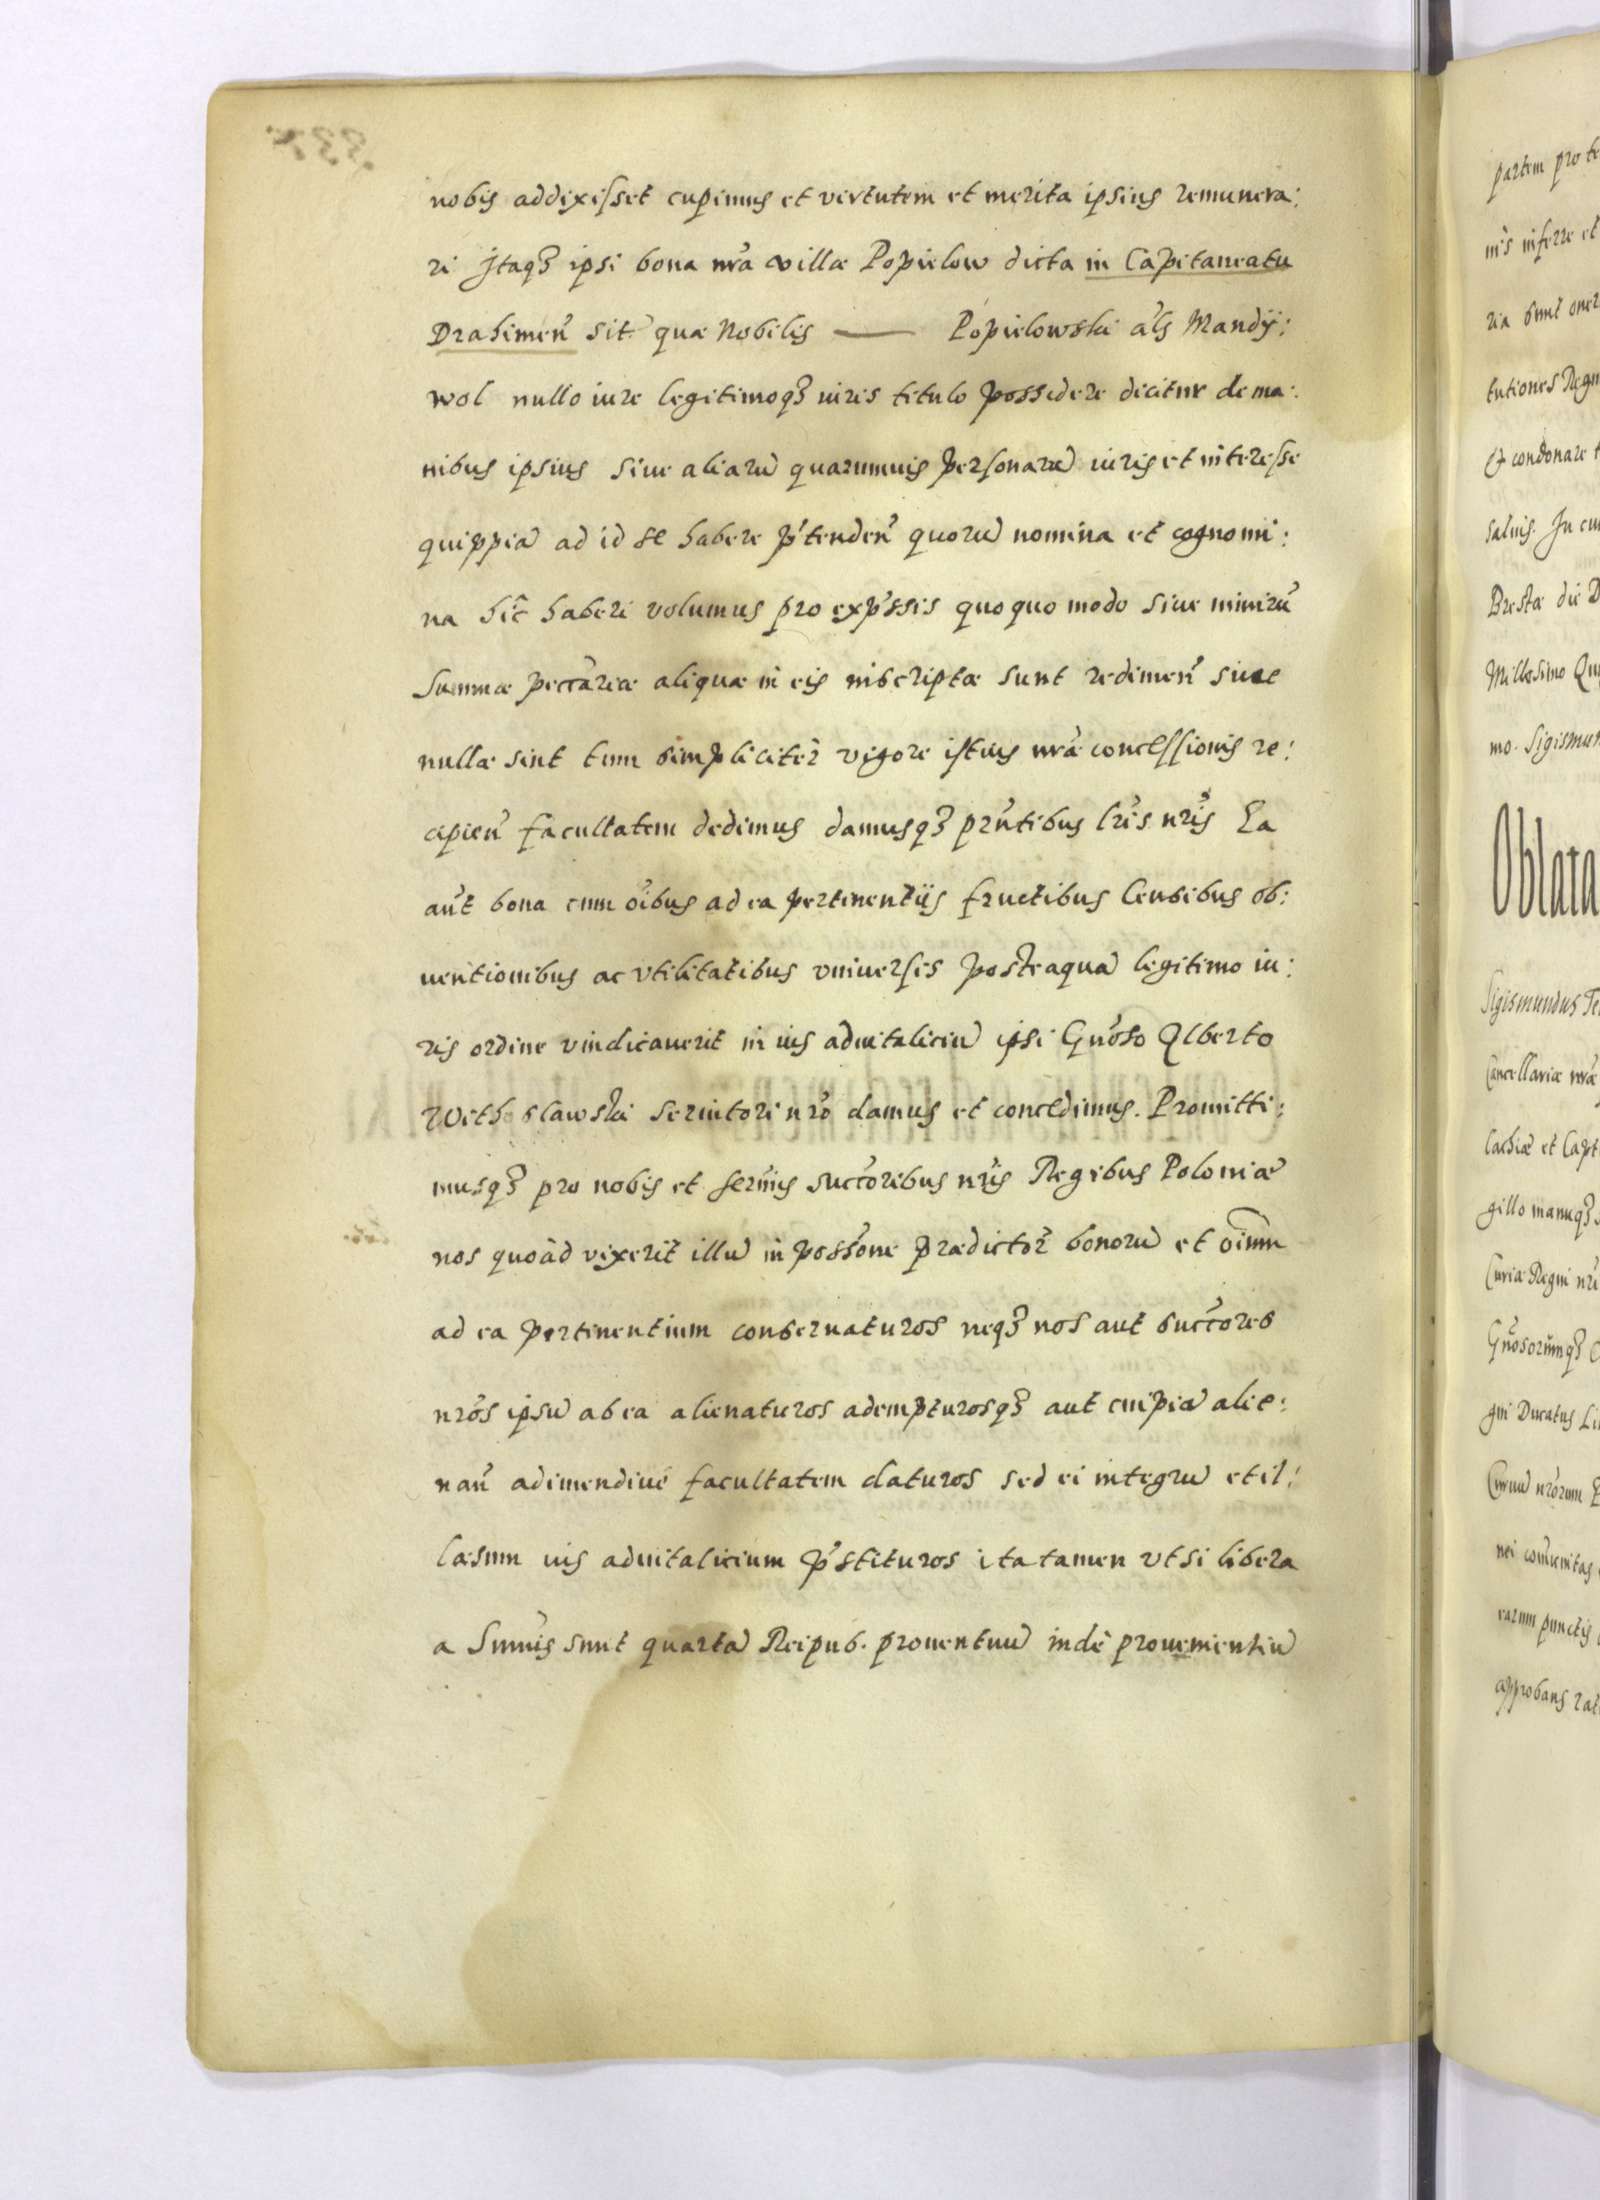 nobis addixisset cupimus et virtutem et merita ipsius remunera:
ri Jtaqȝ ipsi bona nr̃a villæ Popielow dicta in Capitaneatu
Drahimen̄ sit quæ Nobilis — Popielowski al̃s Mandÿ:
wol nullo iure legitimoqȝ iuris titulo possidere dicitur de ma:
nibus ipsius siue aliarũ quarumuis personarũ iuris et interesse
quippiã ad id se habere p̃tenden̄ quorũ nomina et cognomi:
na hic̃ haberi volumus pro exp̃ssis quoquo modo siue nimirũ
Summæ peccãriæ aliquæ in eis inscriptæ sunt redimen̄ siue
nullæ sint tum simpliciter vigore istius nr̃æ concessionis re:
cipien̄ facultatem dedimus damusqȝ prñtibus lr̃is nr̃is Ea
aũt bona cum oĩbus ad ea pertinentijs fructibus Censibus ob:
uentionibus ac vtilitatibus vniuersis posteaquã legitimo iu:
ris ordine vindicauerit in ius aduitaliciũ ipsi Gñoso Alberto
Withoslawski seruitori nr̃o damus et concedimus. Promitti:
musqȝ pro nobis et serm̃is succ̃oribus nr̃is Regibus Poloniæ
nos quoàd vixerit illũ in poss̃one prædictor̃ bonorũ et oĩum
ad ea pertinentium conseruaturos neqȝ nos aut succ̃ores
nr̃os ipsũ ab ea alienaturos adempturosqȝ aut cuipiã alie:
nan̄ adimendiue facultatem daturos sed ei integrũ et il:
læsum ius aduitalicium p̃stituros ita tamen vt si libera
a Sum̃is sunt quartã Reipub. prouentuũ indè prouenientiũ
partem pro te
ria sunt oner
tutiones Regn
Et condonare
saluis. In cu
Brestæ die D
Millesimo Qu
mo. Sigismun
Oblata
Sigismundus Te
Cancellariæ nr̃æ
lachiæ et Capt
gillo manuqȝ s
Curiæ Regni nr̃i
Gñosorumqȝ
gni Ducatus Li
nr̃orum
rarum punctis
approbans rat